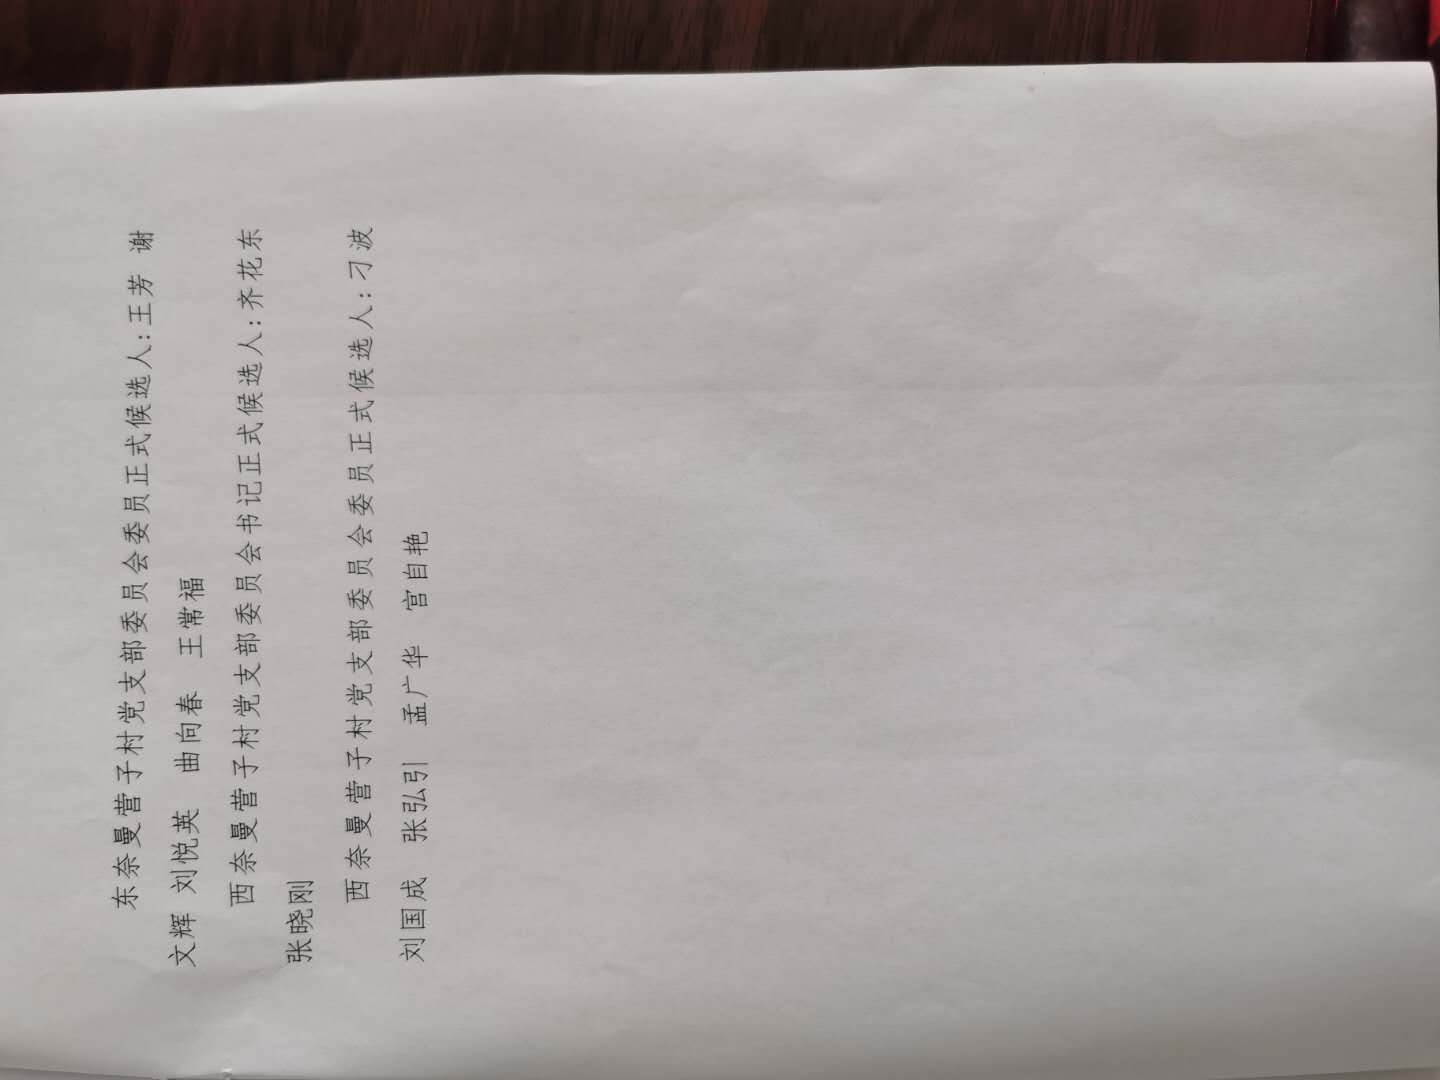 东奈曼营子村党支部委员会委员正式候选人：王芳 谢
文辉 刘悦英 曲向春 王常福
西奈曼营子村党支部委员会书记正式候选人：齐花东
张晓刚
西奈曼营子村党支部委员会委员正式候选人：刁波
刘国成 张弘引 孟广华 宫自艳